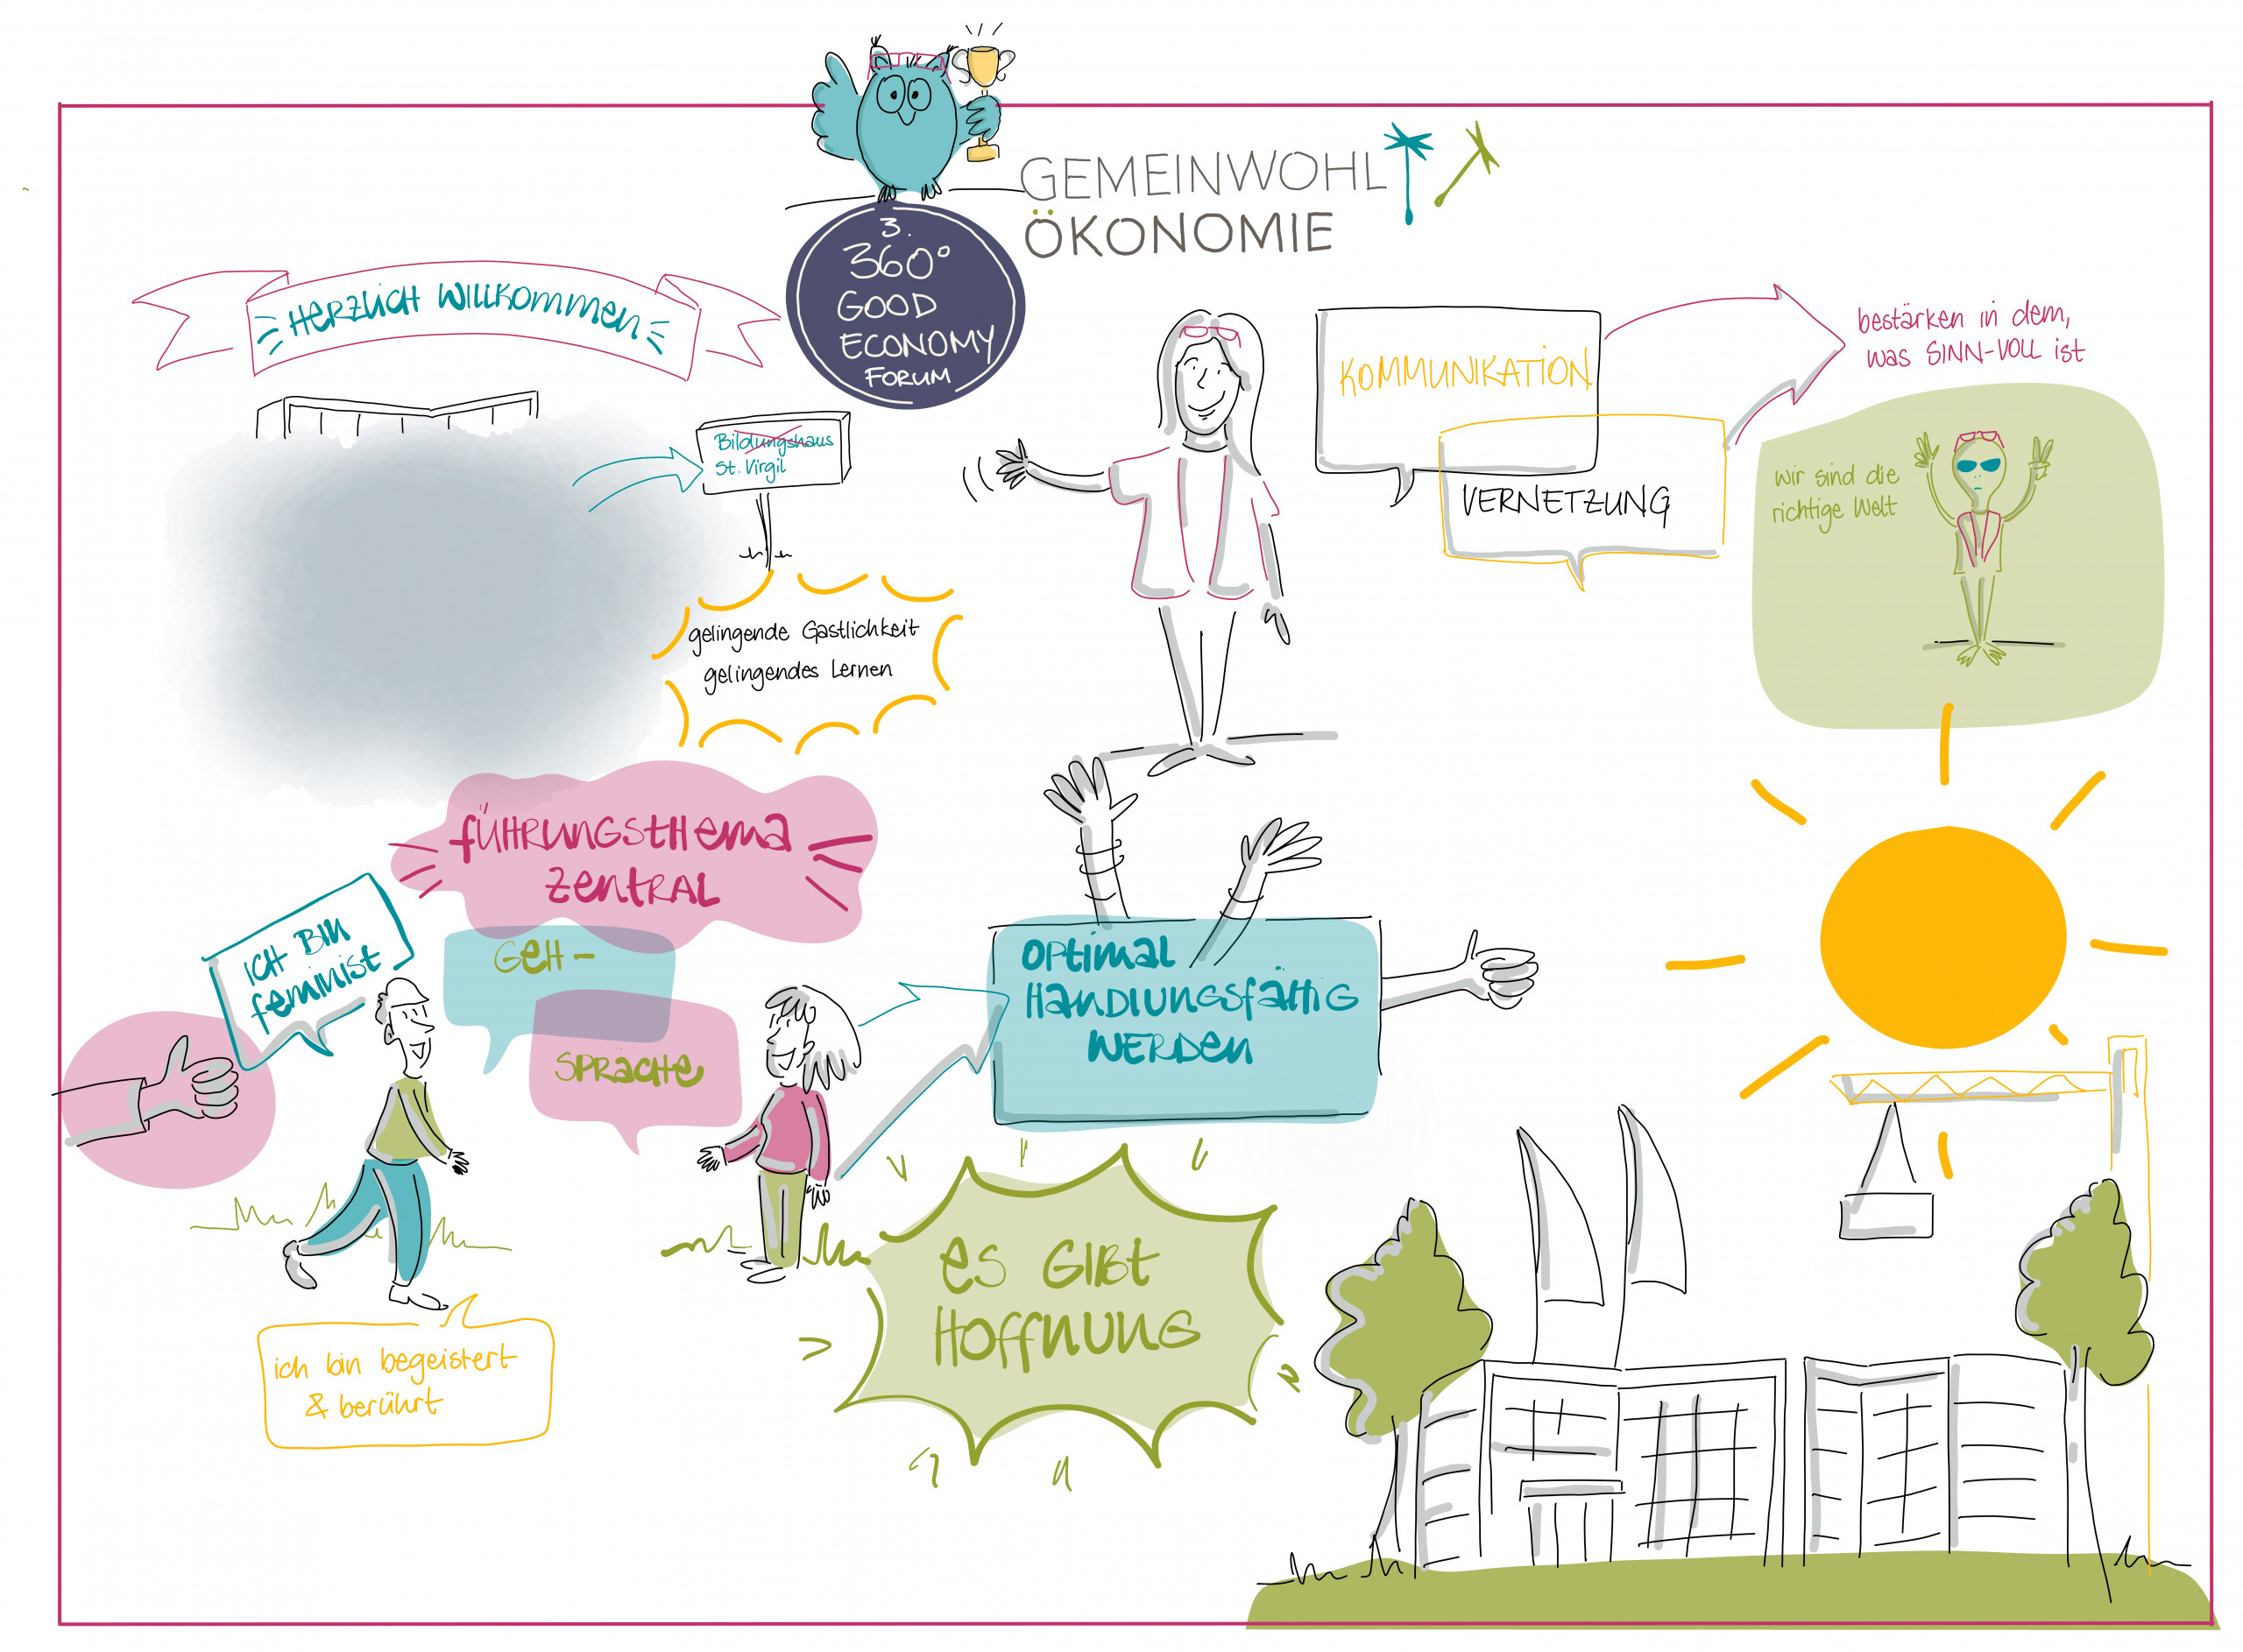 GEMEINWOHL
ÖKONOMIE
3.
360°
GOOD
ECONOMY
FORUM
HERZLICH WILLKOMMEN
Bildungshaus
St. Virgil
gelingende Gastlichkeit
gelingendes Lernen
KOMMUNIKATION
VERNETZUNG
bestärken in dem,
was SINN-VOLL ist
wir sind die
richtige Welt
FÜHRUNGSTHEMA
ZENTRAL
ICH BIN
FEMINIST
GEH-
SPRÄCHE
OPTIMAL
HANDLUNGSFÄHIG
WERDEN
ES GIBT
HOFFNUNG
ich bin begeistert
& berührt